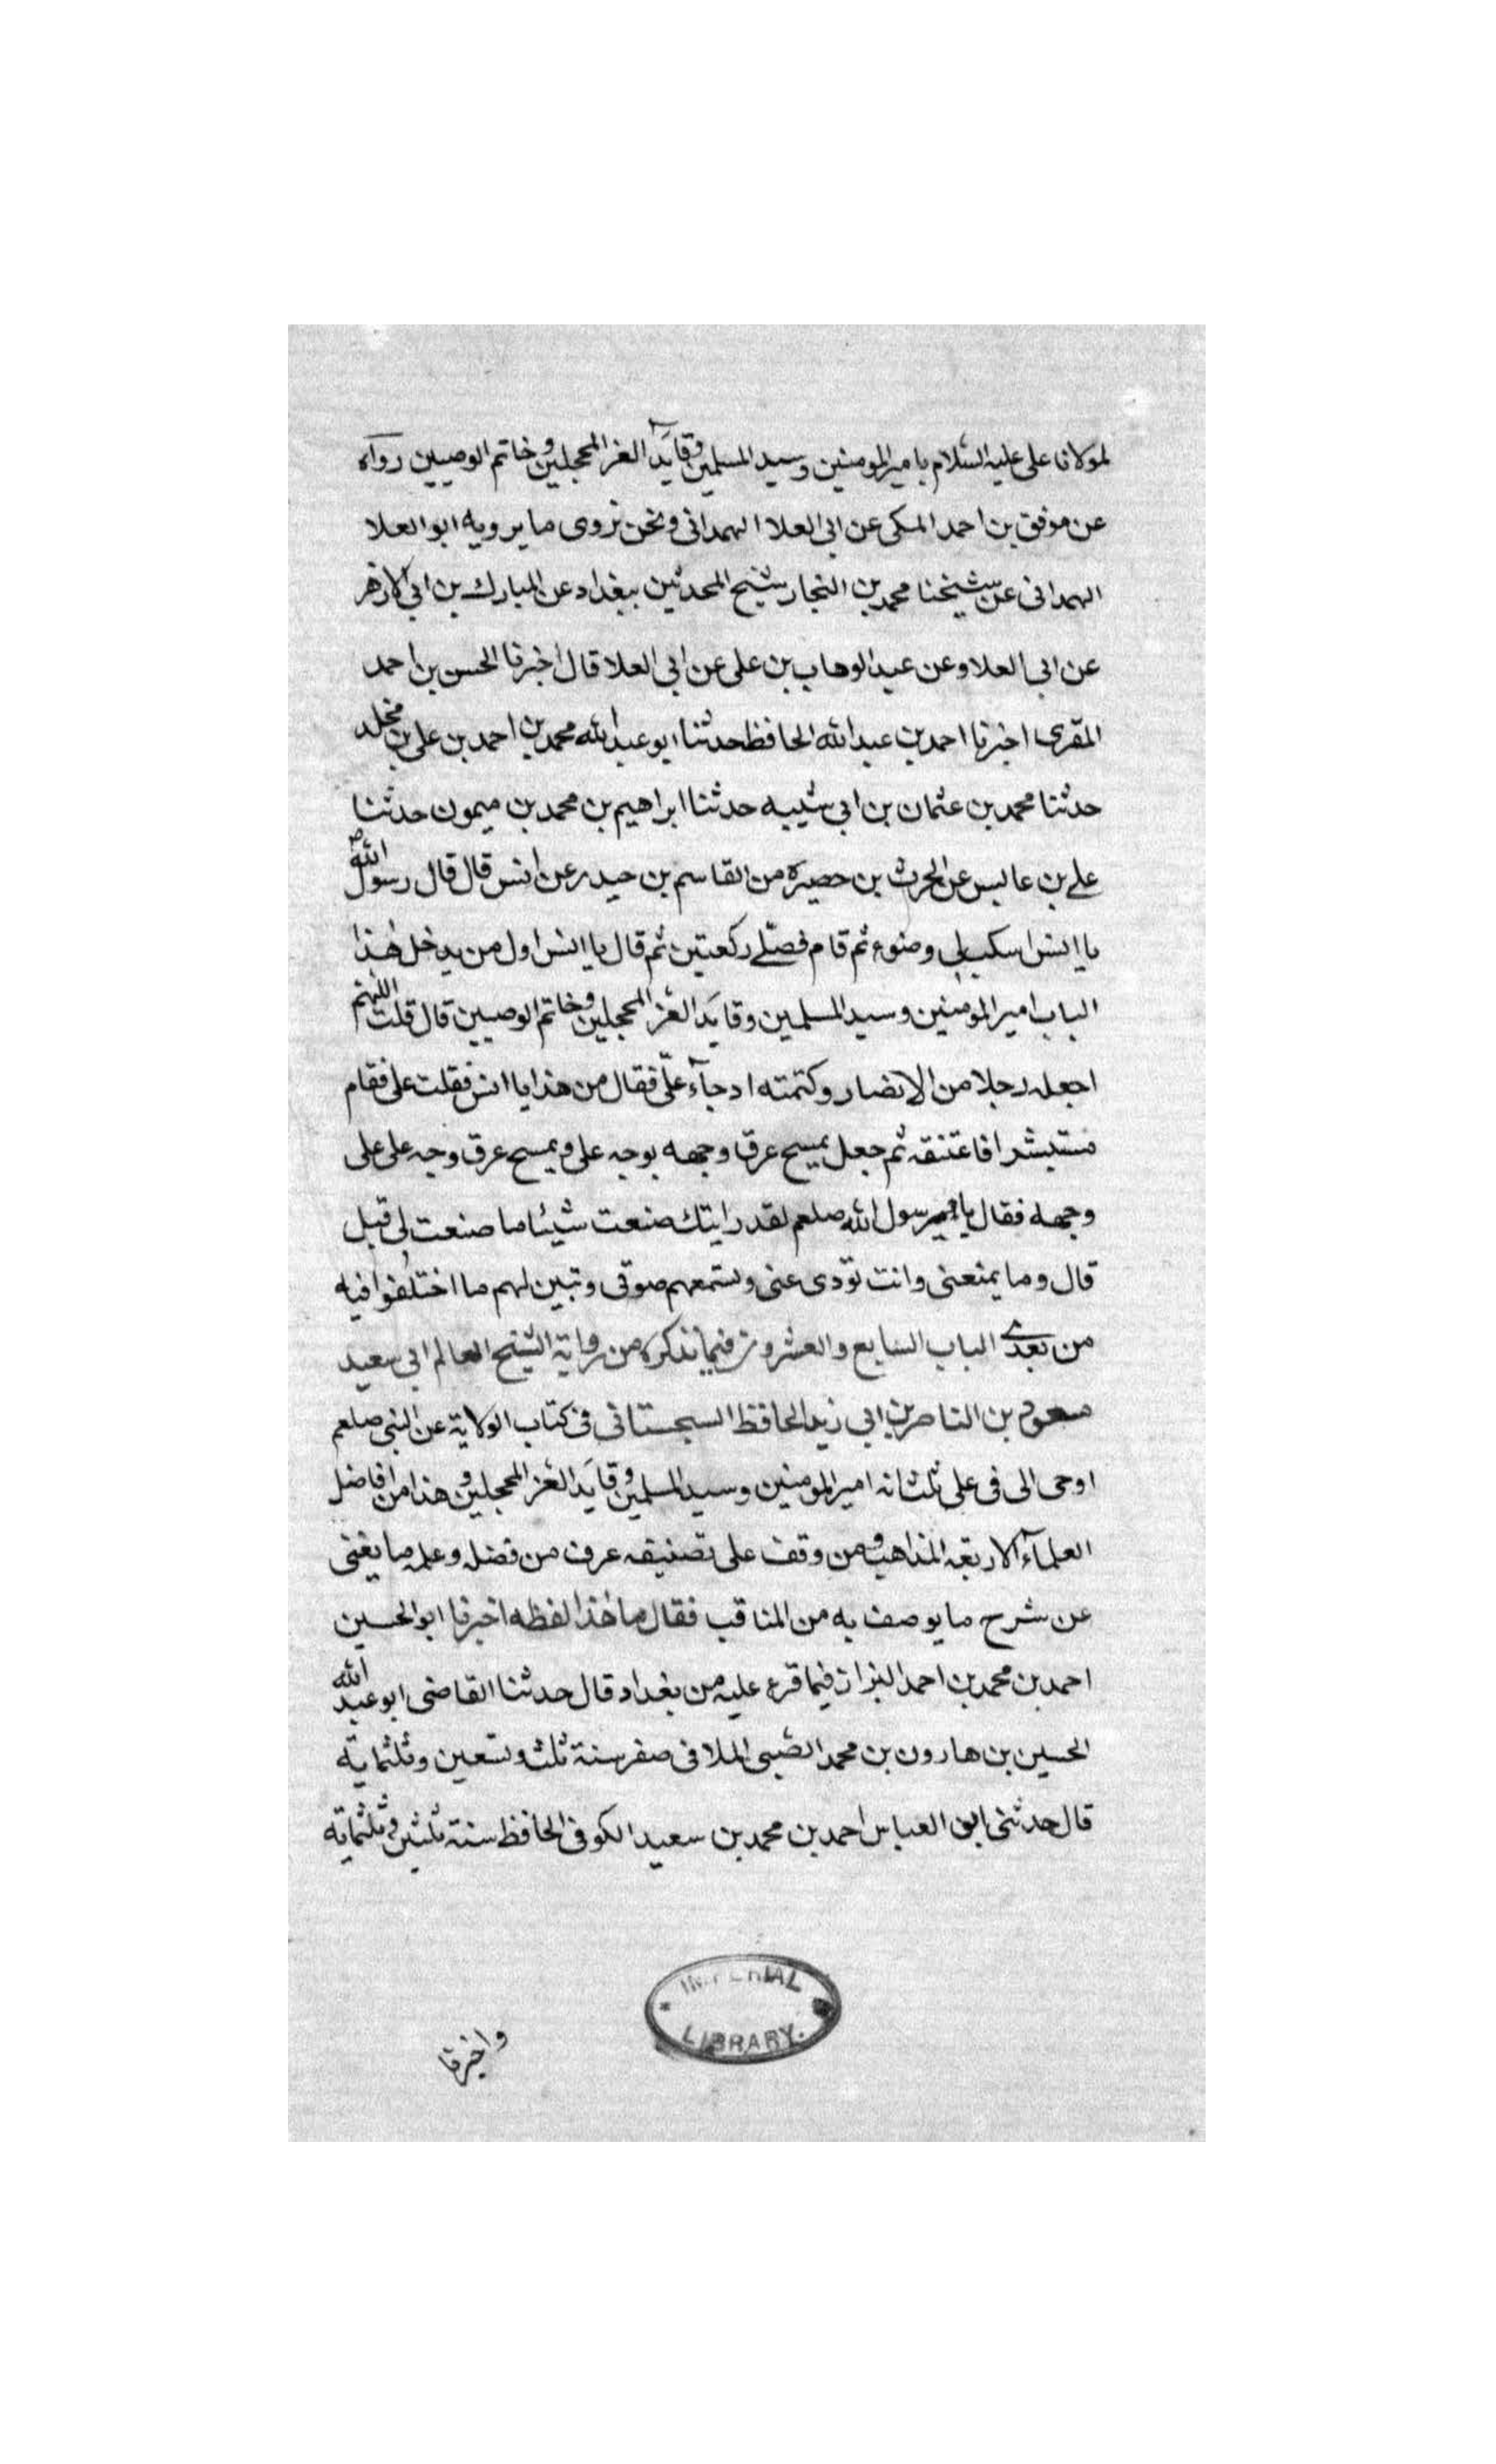 لمولانا على عليه السّلام بامير المومنين وسيد المسلمين وقايَد الغر المحجلين وخاتم الوصيين رواه
عن موفق بن احمد المكى عن ابى العلا الهمدانى ونحن نروى ما يرويه ابو العلا
الهمدانى عن شيخنا محمد بن النجار شيخ المحدثين ببغداد عن المبارك بن ابى الازهر
عن ابى العلا وعن عبد الوهاب بن على عن ابى العلا قال اخبرنا الحسن بن احمد
المقرى اخبرنا احمد بن عبد الله الحافظ حدثنا ابو عبد الله محمد بن احمد بن على بن مخلد
حدثنا محمد بن عثمان بن ابى شيبه حدثنا ابراهيم بن محمد بن ميمون حدثنا
على بن عابس عن الحرث بن حصيره من القاسم بن حيدر عن انس قال قال رسول الله ص
يا انس اسكب لى وضوء ثم قام فصلّى ركعتين ثم قال يا انس اول من يدخل هذا
الباب امير المومنين وسيد المسلمين وقايَد الغر المحجلين وخاتم الوصيين قال قلت اللهم
اجعله رجلا من الانصار وكتمته اد جآء علىّ فقال من هذا يا انس فقلت على فقام
مستبشرا فاعتنقه ثم جعل يمسح عرق وجهه بوجه على ويمسح عرق وجه على على
وجهه فقال يا رسول الله صلعم لقد رايتك صنعت شيئا ما صنعت لى قبل
قال وما يمنعنى وانت تؤدى عنى وتسمعهم صوتى وتبين لهم ما اختلفوا فيه
من بعدى الباب السابع والعشرون فيما نذكره من رواية الشيخ العالم ابى سعيد
مسعود بن الناصر بن ابى زيد الحافظ السجستانى فى كتاب الولاية عن النبى صلعم
اوحى الى فى على ثلث انه امير المومنين وسيد المسلمين وقايَد الغر المحجلين وهذا من افاضل
العلمآء الاربعه المذاهب ومن وقف على تصنيفه عرف من فضله وعلمه ما يغنى
عن شرح ما يوصف به من المناقب فقال ما هذا لفظه اخبرنا ابو الحسين
احمد بن محمد بن احمد البزاز فيما قرء عليه من بغداد قال حدثنا القاضى ابو عبد الله
الحسين بن هارون بن محمد الضبى املا فى صفر سنة ثلث وتسعين وثلثماية
قال حدثنى ابو العباس احمد بن محمد بن سعيد الكوفى الحافظ سنة ثلثين وثلثمايه
IMPERIAL
LIBRARY.
واخبرنا